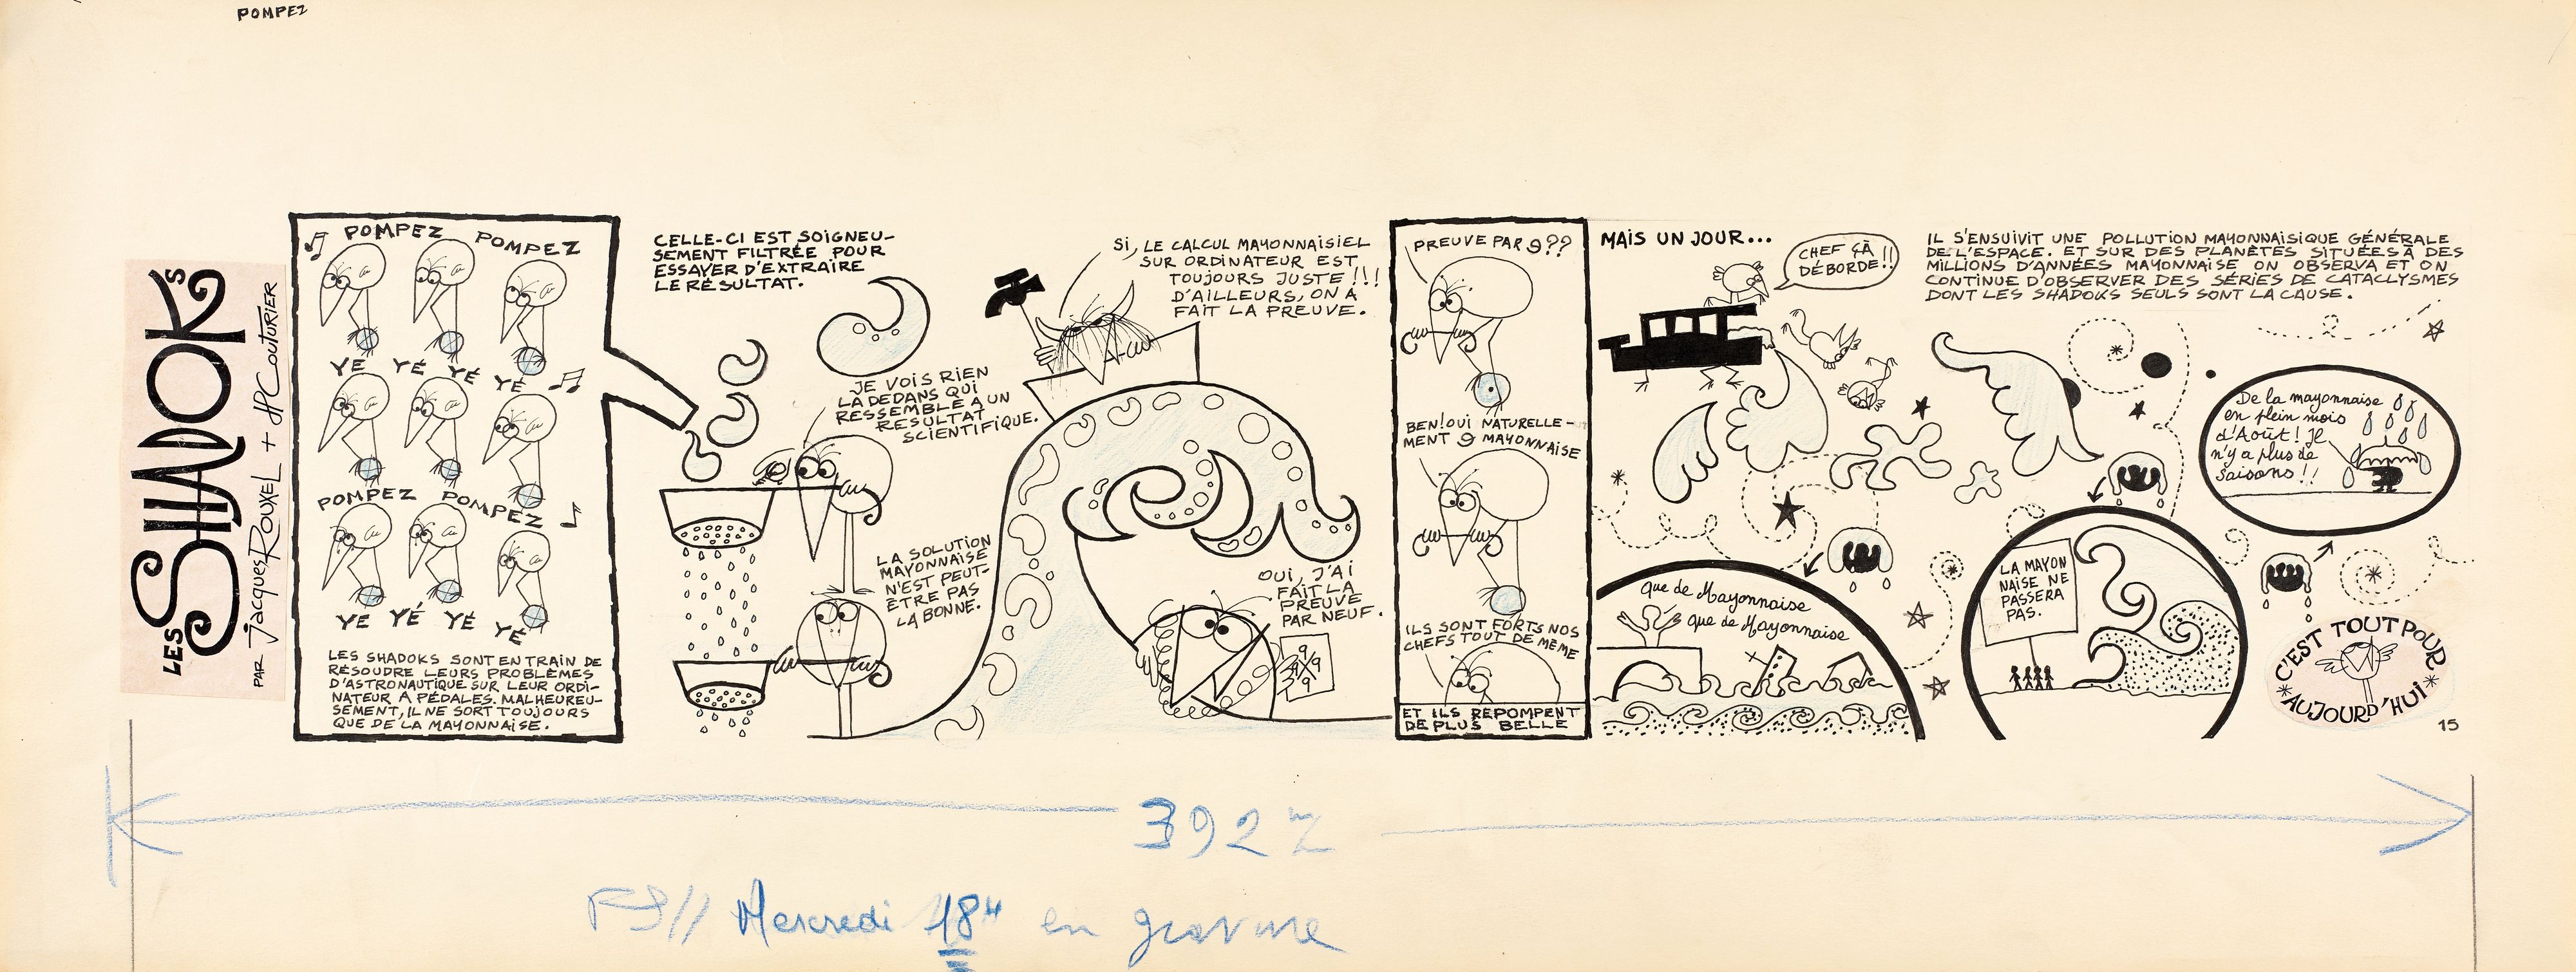 POMPEZ
LES SHADOKS
PAR Jacques ROUXEL + JP COUTURIER
POMPEZ POMPEZ
YE YÉ YÉ YÉ
POMPEZ POMPEZ
YE YÉ YÉ YÉ
LES SHADOKS SONT EN TRAIN DE
RÉSOUDRE LEURS PROBLÈMES
D'ASTRONAUTIQUE SUR LEUR ORDI-
NATEUR À PÉDALES. MALHEUREU-
SEMENT, IL NE SORT TOUJOURS
QUE DE LA MAYONNAISE.
CELLE-CI EST SOIGNEU-
SEMENT FILTRÉE POUR
ESSAYER D'EXTRAIRE
LE RÉSULTAT.
JE VOIS RIEN
LÀ DEDANS QUI
RESSEMBLE À UN
RESULTAT
SCIENTIFIQUE.
LA SOLUTION
MAYONNAISE
N'EST PEUT-
ÊTRE PAS
LA BONNE.
SI, LE CALCUL MAYONNAISIEL
SUR ORDINATEUR EST
TOUJOURS JUSTE!!!
D'AILLEURS, ON A
FAIT LA PREUVE.
OUI, J'AI
FAIT LA
PREUVE
PAR NEUF.
9
9 9
9
PREUVE PAR 9??
BEN! OUI NATURELLE-
MENT 9 MAYONNAISE
ILS SONT FORTS NOS
CHEFS TOUT DE MÊME
ET ILS REPOMPENT
DE PLUS BELLE
MAIS UN JOUR...
CHEF ÇÀ
DÉBORDE!!
IL S'ENSUIVIT UNE POLLUTION MAYONNAISIQUE GÉNÉRALE
DE L'ESPACE. ET SUR DES PLANÈTES SITUÉES À DES
MILLIONS D'ANNÉES MAYONNAISE ON OBSERVA ET ON
CONTINUE D'OBSERVER DES SÉRIES DE CATACLYSMES
DONT LES SHADOKS SEULS SONT LA CAUSE.
Que de Mayonnaise
que de Mayonnaise
LA MAYON
NAISE NE
PASSERA
PAS.
De la mayonnaise
en plein mois
d'Août! Il
n'y a plus de
Saisons!!
C'EST TOUT POUR
AUJOURD'HUI
15
392
Mercredi 18H en gravure